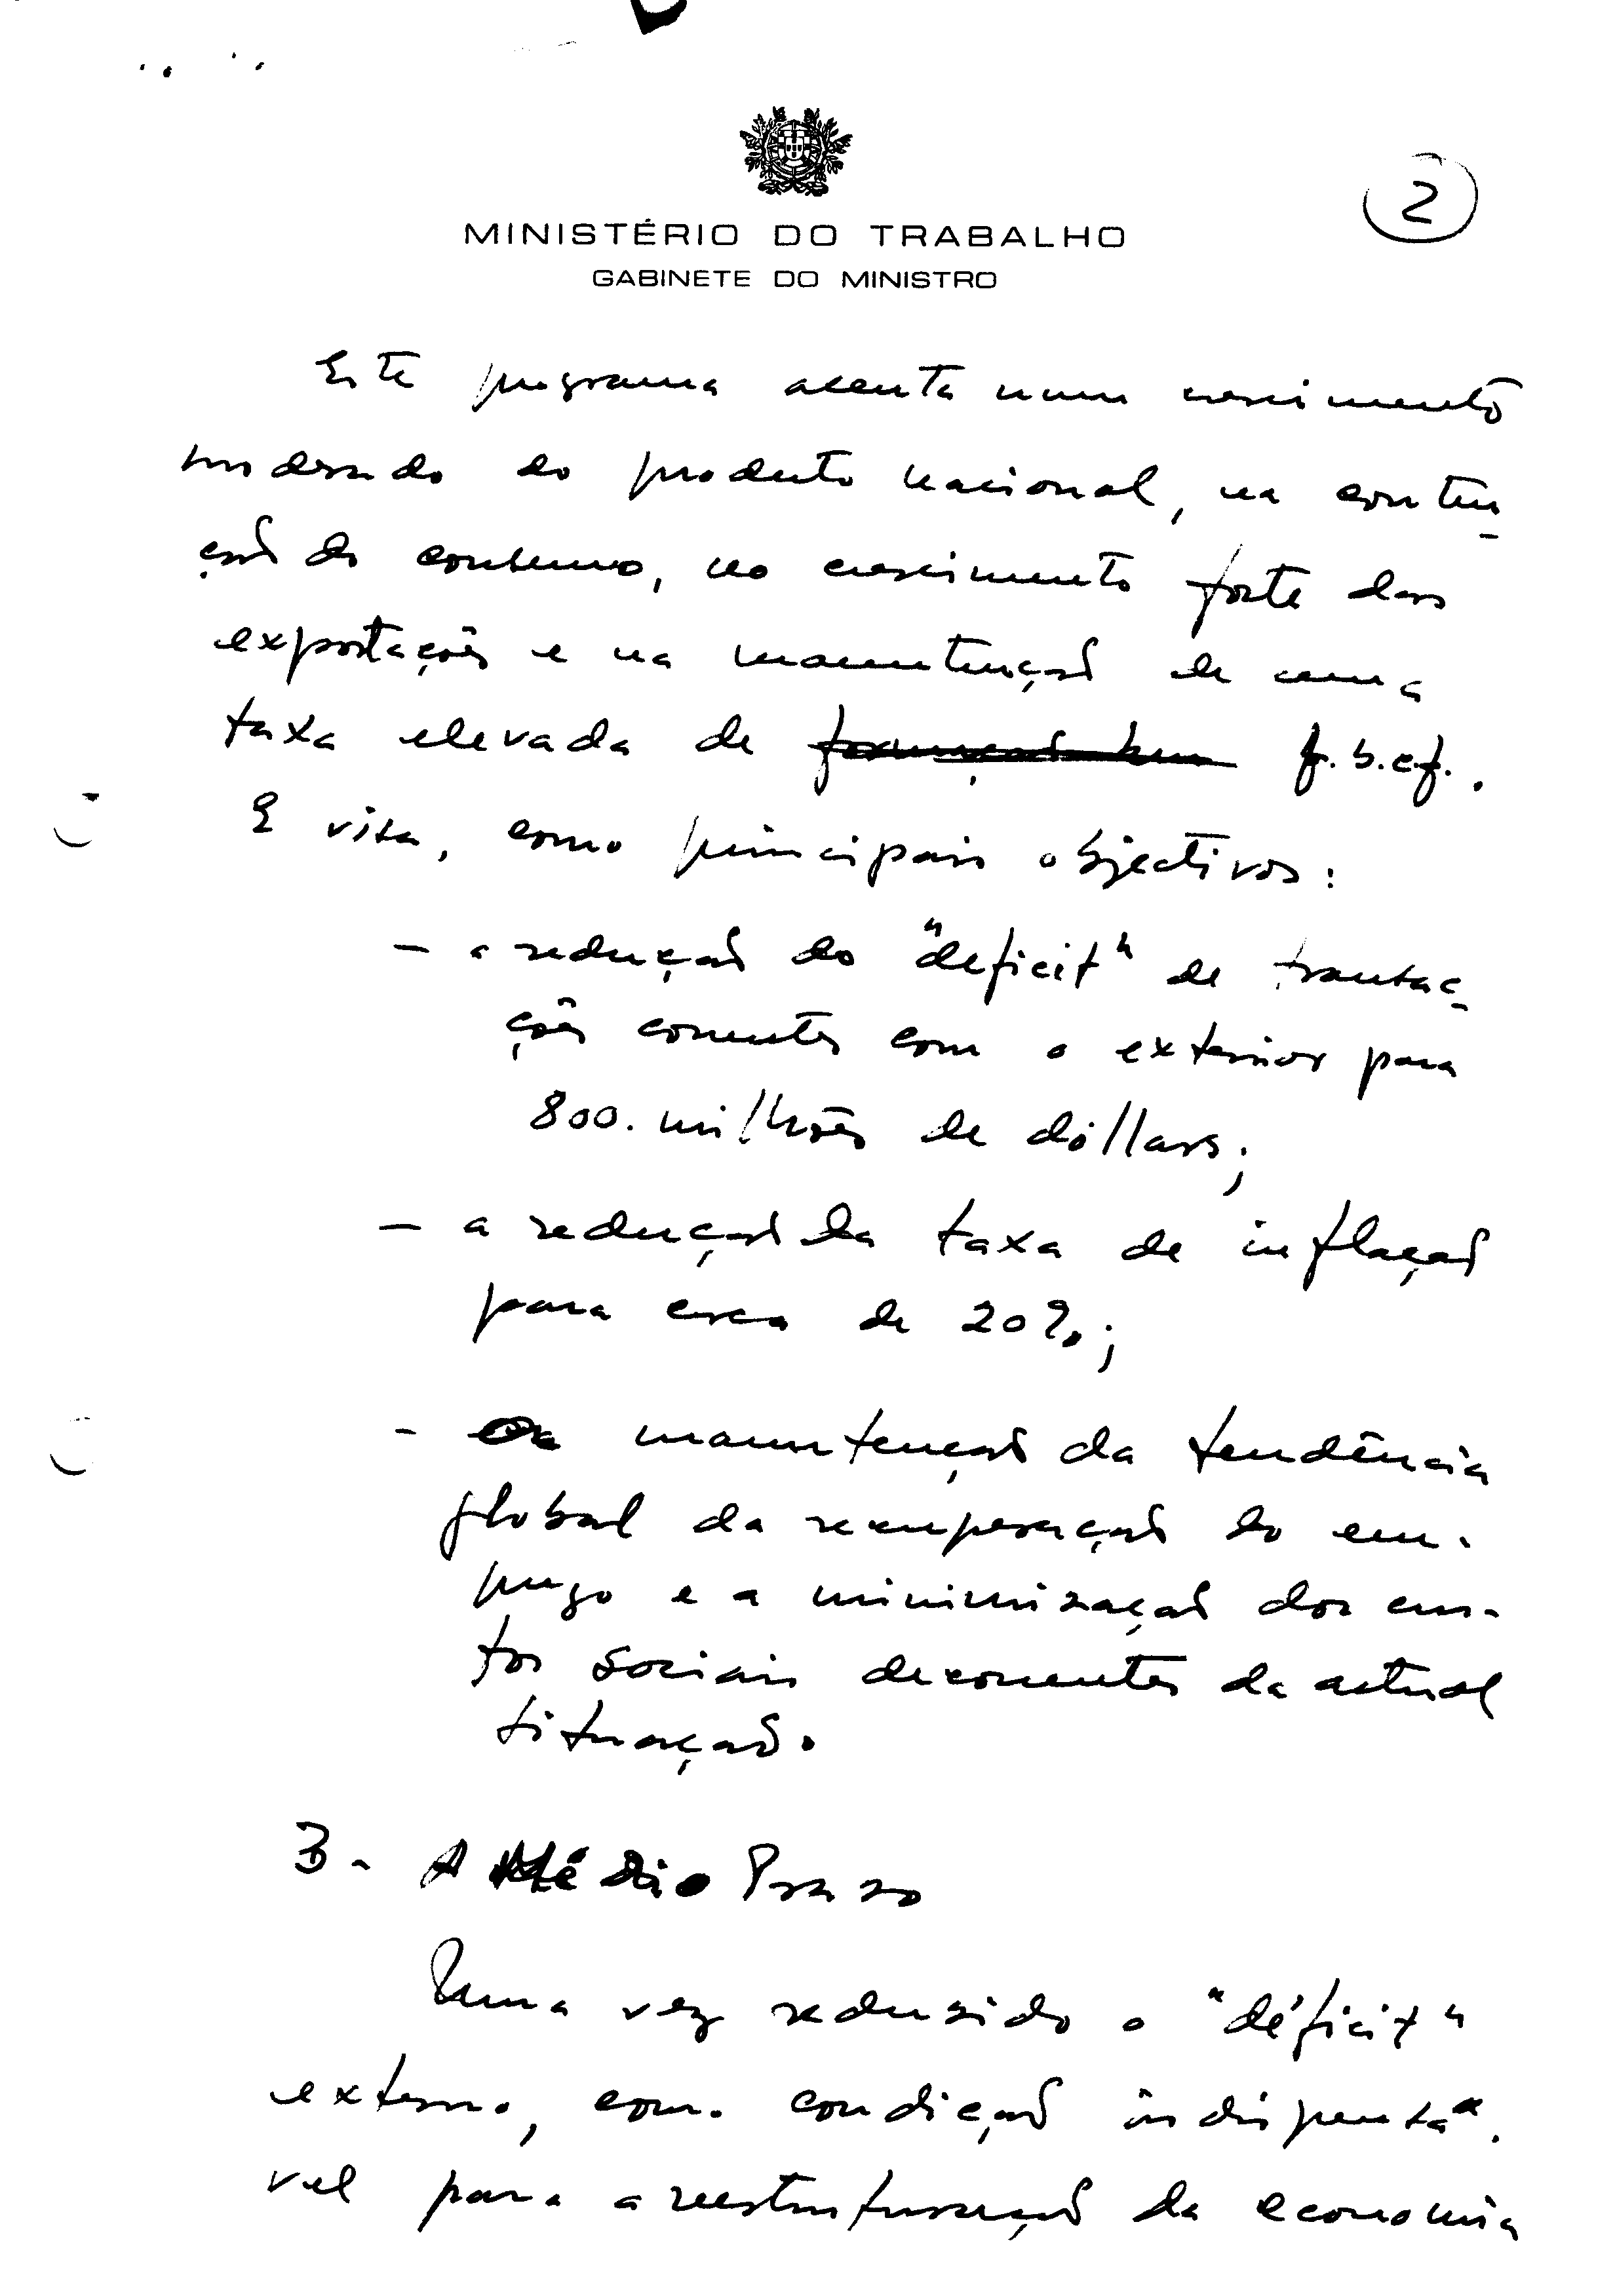 2
MINISTÉRIO DO TRABALHO
GABINETE DO MINISTRO
Este programa acenta num crescimento
moderado do produto nacional, na conten-
ção do consumo, no crescimento forte das
exportações e na manutenção de uma
taxa elevada de f.b.c.f..
E visa, como principais objectivos:
- a redução do "deficit" de transac-
ções correntes com o exterior para
800. milhões de dóllars;
- a redução da taxa de inflação
para cerca de 20%;
- a manutenção da tendência
global da recuperação do em-
prego e a minimização dos cus-
tos sociais decorrentes da actual
situação.
3 - A Médio Prazo
Uma vez reduzido o "déficit"
externo, como condição indispensá-
vel para a reestruturação da economia